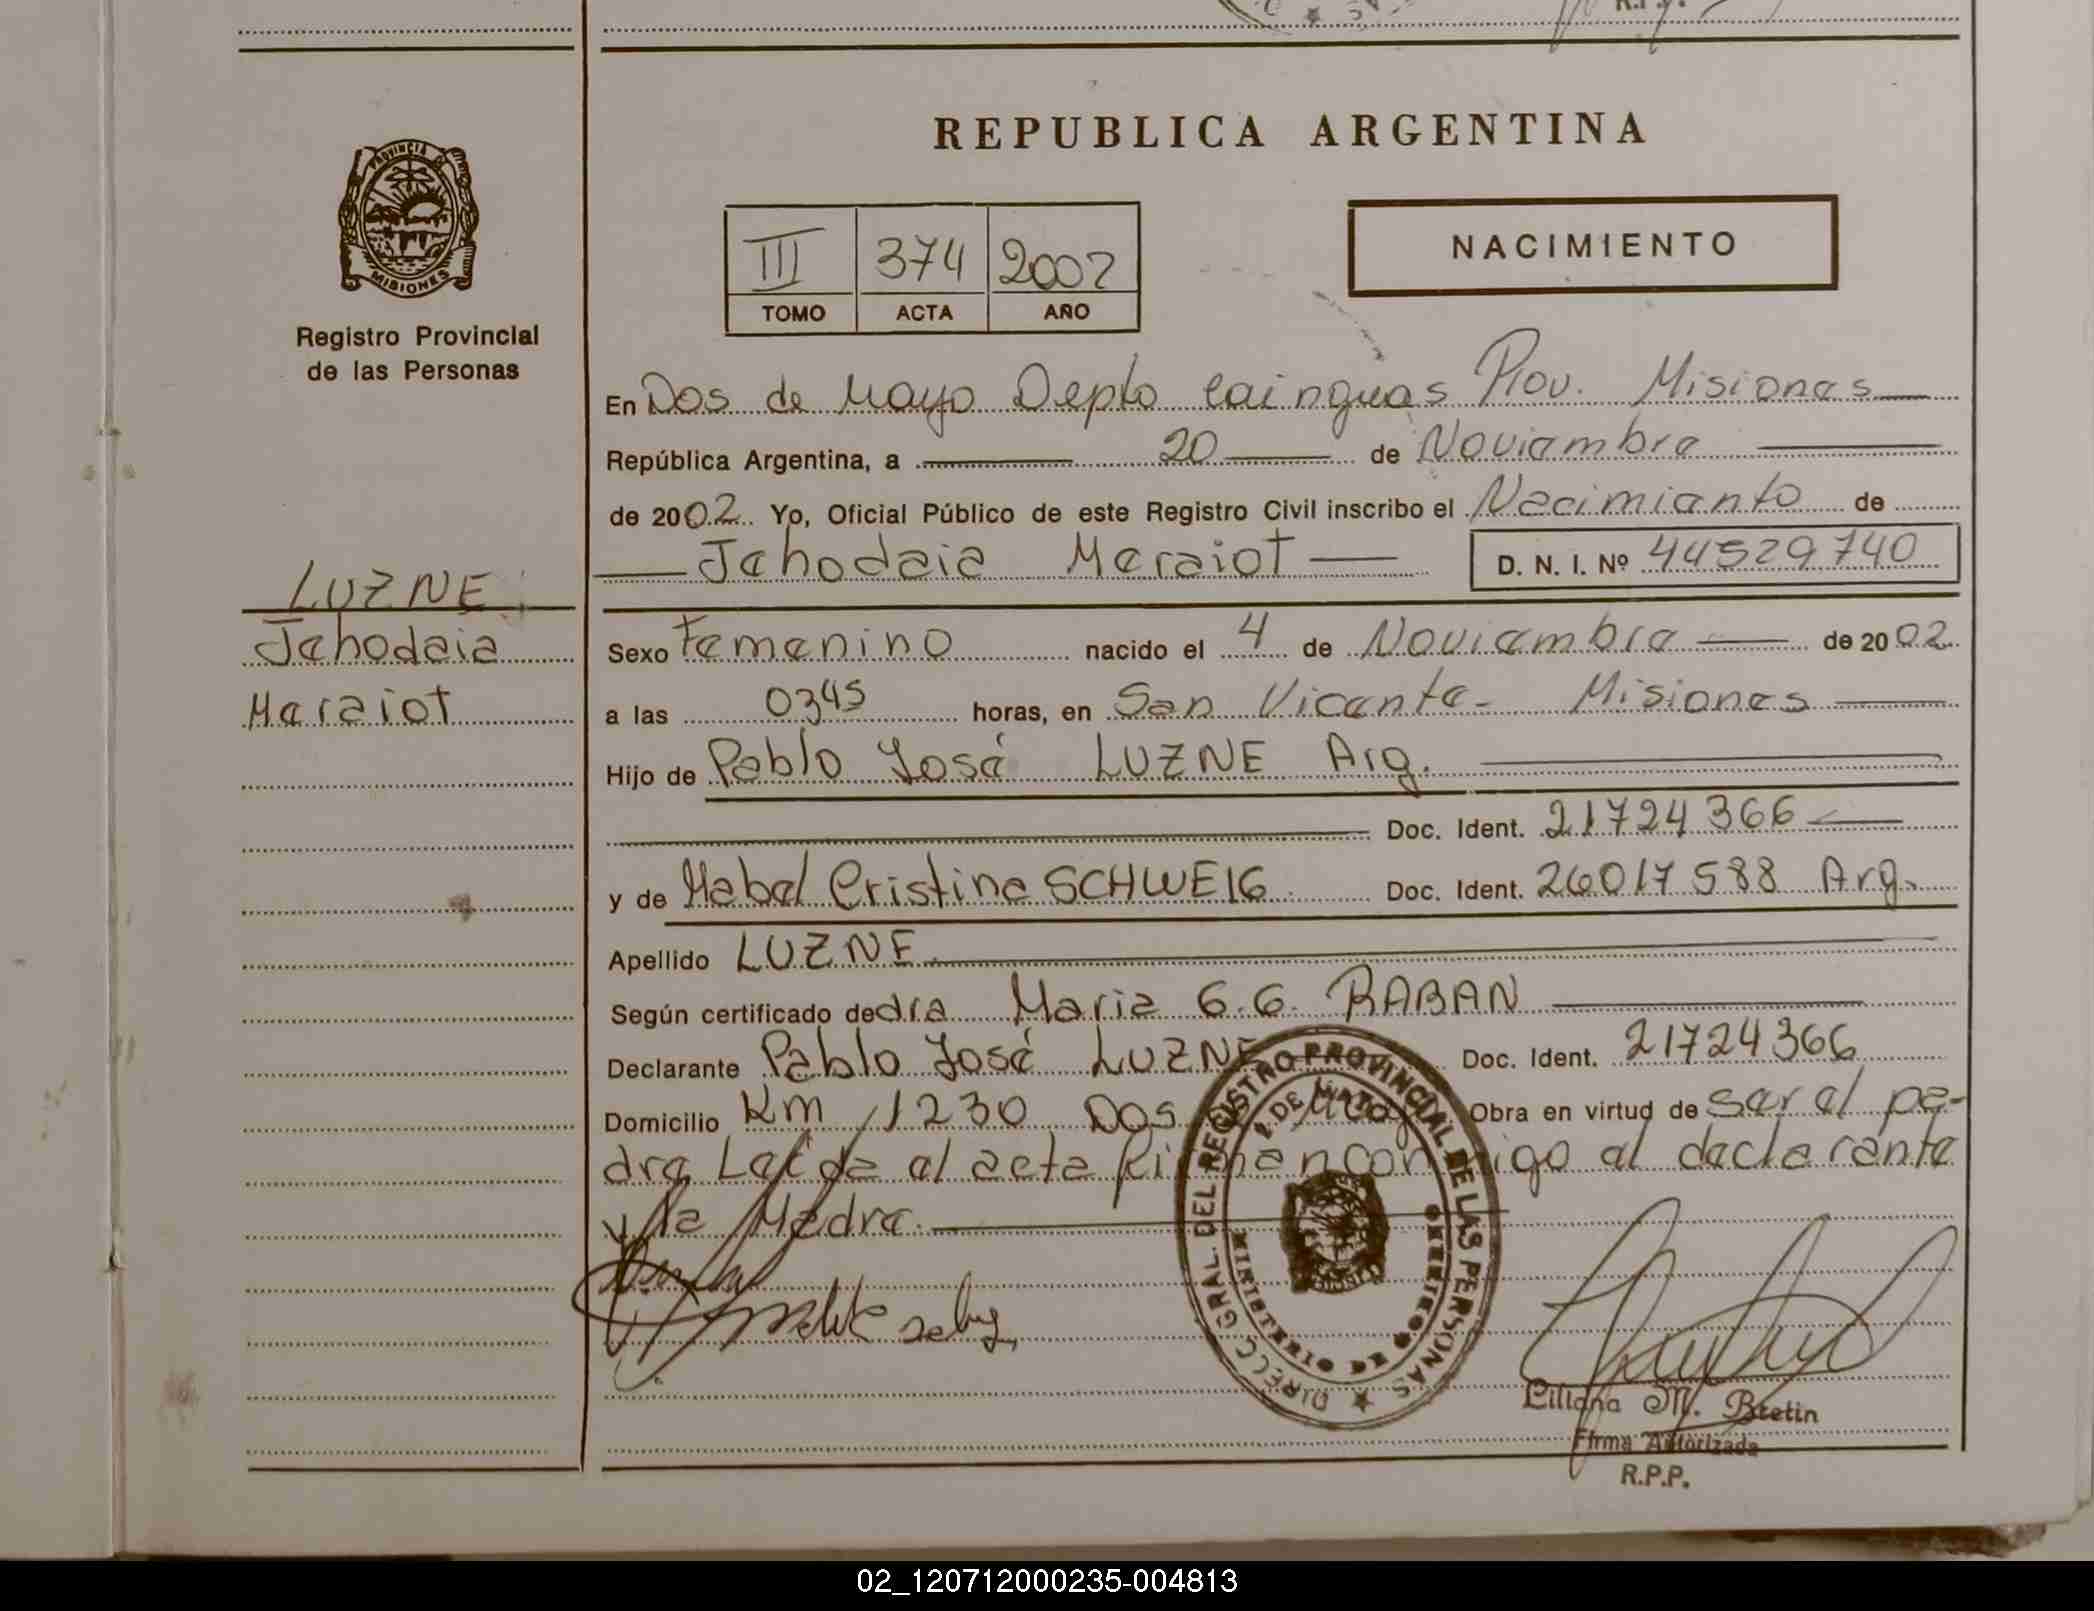 REPUBLICA ARGENTINA
PROVINCIA DE
MISIONES
Registro Provincial
de las Personas
III 374 2002
TOMO ACTA AÑO
NACIMIENTO
En Dos de Mayo Depto Cainguas Prov. Misiones
República Argentina, a 20 de Noviembre
de 2002 Yo, Oficial Público de este Registro Civil inscribo el Nacimiento de
Jehodaia Meraiot D. N. I. Nº 44529740
LUZNE
Jehodaia
Meraiot
Sexo Femenino nacido el 4 de Noviembre de 2002
a las 0345 horas, en San Vicente - Misiones
Hijo de Pablo José LUZNE Arg.
Doc. Ident. 21724366
y de Mabel Cristina SCHWEIG Doc. Ident. 26017588 Arg.
Apellido LUZNE
Según certificado de dra Maria G. G. RABAN
Declarante Pablo José LUZNE Doc. Ident. 21724366
Domicilio Km 1230 Dos de Mayo Obra en virtud de ser el pa-
dre Leída el acta firman conmigo el declarante
y la Madre.
DIRECC. GRAL. DEL REGISTRO PROVINCIAL DE LAS PERSONAS
2 DE MAYO
MINISTERIO DE GOBIERNO
Liliana M. Bretin
Firma Autorizada
R.P.P.
02_120712000235-004813